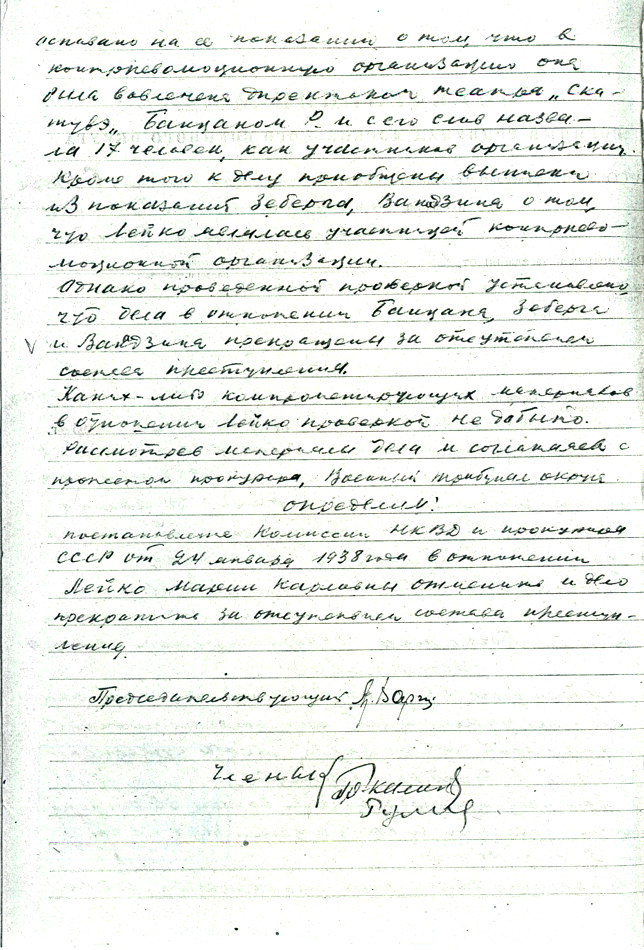 основано на ее показании о том, что в
контрреволюционную организацию она
была вовлечена директором театра „Ска-
туве„ Банцаном Р. и с его слов назва-
ла 17 человек, как участников организации.
Кроме того к делу приобщены выписки
из показаний Зеберга, Вандзина о том
что Лейко являлась участницей контррево-
люционной организации.
Однако проведенной проверкой установлено,
что дела в отношении Банцана, Зеберга
и Вандзина прекращены за отсутствием
состава преступления.
Каких-либо компрометирующих материалов
в отношении Лейко проверкой не добыто.
Рассмотрев материалы дела и соглашаясь с
протестом прокурора, Военный трибунал округа
определил:
постановление Комиссии НКВД и прокурора
СССР от 24 января 1938 года в отношении
Лейко Марии Карловны отменить и дело
прекратить за отсутствием состава преступ-
ления.
Председательствующий
Члены